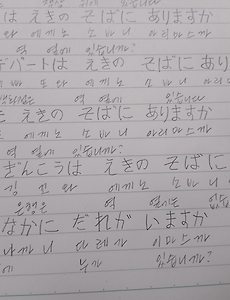 은행 위에 있습니다
は えきの そばに ありますか
에끼노 소바니 아리마스까
역 옆에 있습니까?
デパートは えきの そばに あり
빠 또와 에끼노 소바니 아리
역 옆에 있습니
は えきの そばに ありますか
에끼노 소바니 아리마스까
역 옆에 있습니까?
ぎんこうは えきの そばに
깅 꼬와 에끼노 소바니
은행은 역 옆에는 없
なかに だれが いますか
나까니 다레가 이마스까
에 누가 있습니까?